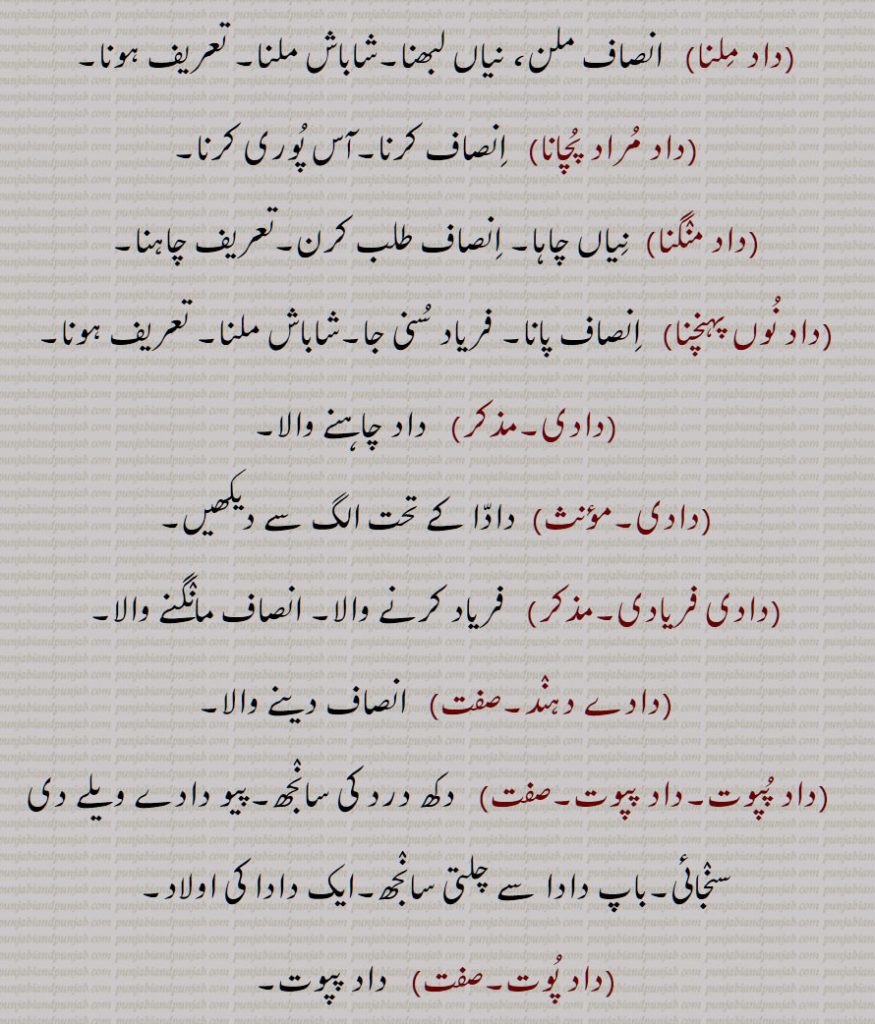 (داد مِلنا) انصاف ملن، نیاں لبھنا۔شاباش ملنا۔ تعریف ہونا۔
(داد مُراد پُچانا) اِنصاف کرنا۔آس پُوری کرنا۔
(داد منگنا) نِیاں چاہا۔ اِنصاف طلب کرن۔تعریف چاہنا۔
(داد نُوں پہنچنا) اِنصاف پانا۔ فریاد سُنی جا۔شاباش ملنا۔ تعریف ہونا۔
(دادی۔مذکر) داد چاہنے والا۔
(دادی۔مؤنث) دادّا کے تحت الگ سے دیکھیں۔
(دادی فریادی۔مذکر) فریاد کرنے والا۔ انصاف مانگنے والا۔
(دادے دہند۔صفت) انصاف دینے والا۔
(داد پُپوت۔داد پپوت۔صفت) دکھ درد کی سانجھ۔پیو دادے ویلے دی
سنجائی۔باپ دادا سے چلتی سانجھ۔ایک دادا کی اولاد۔
(داد پُوت۔صفت) داد پپوت۔